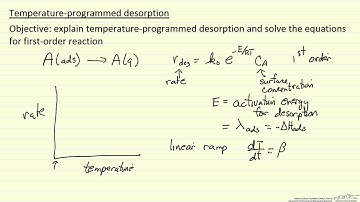 Temperature-programmed desorption
Objective: explain temperature-programmed desorption and solve the equations
for first-order reaction
A(ads) → A(g)
r_des = k₀ e^(-E/RT) C_A 1st order
rate
surface
concentration
E = activation energy
for desorption
= λ_ads = -ΔH_ads
linear ramp dT/dt = β
rate
temperature